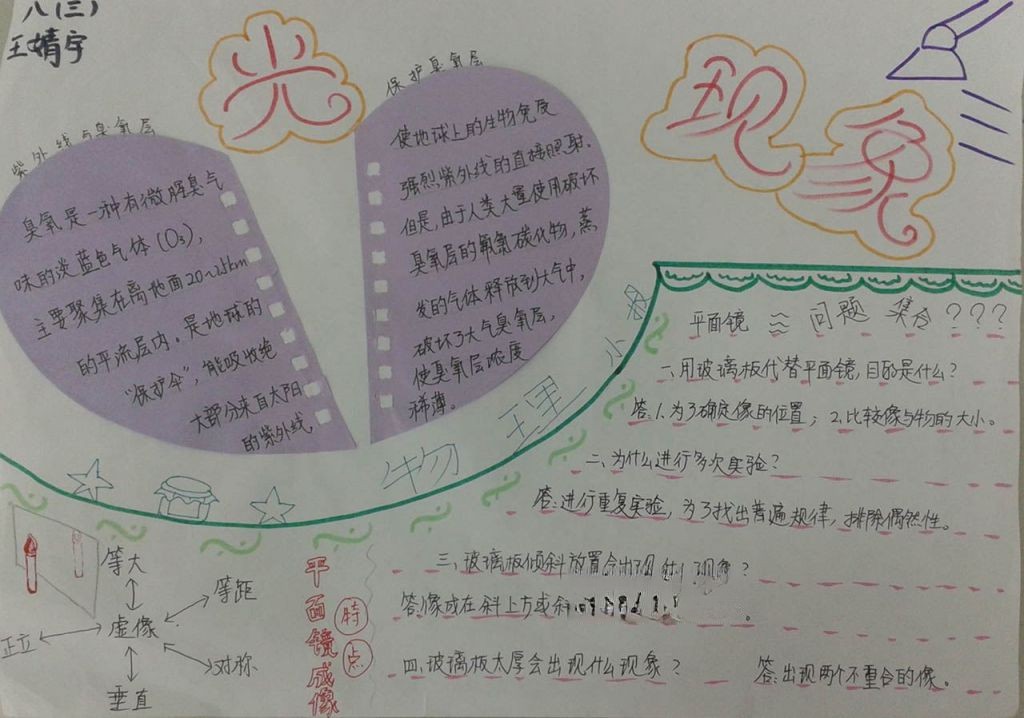 八(三)
王婧宇
光
现象
紫外线与臭氧层
臭氧是一种有微腥臭气
味的淡蓝色气体(O₃),
主要聚集在离地面20~25km
的平流层内。是地球的
“保护伞”,能吸收绝
大部分来自太阳
的紫外线
保护臭氧层
使地球上的生物免受
强烈紫外线的直接照射.
但是,由于人类大量使用破坏
臭氧层的氟氯碳化物,蒸
发的气体释放到大气中,
破坏了大气臭氧层,
使臭氧层浓度
稀薄。
物理小
平面镜 问题集合???
一、用玻璃板代替平面镜,目的是什么?
答:1.为了确定像的位置;2.比较像与物的大小。
二、为什么进行多次实验?
答:进行重复实验,为了找出普遍规律,排除偶然性。
三、玻璃板倾斜放置会出现什么现象?
答:像成在斜上方或斜
四、玻璃板太厚会出现什么现象?
答:出现两个不重合的像。
平面镜成像
特点
等大
等距
正立
虚像
对称
垂直